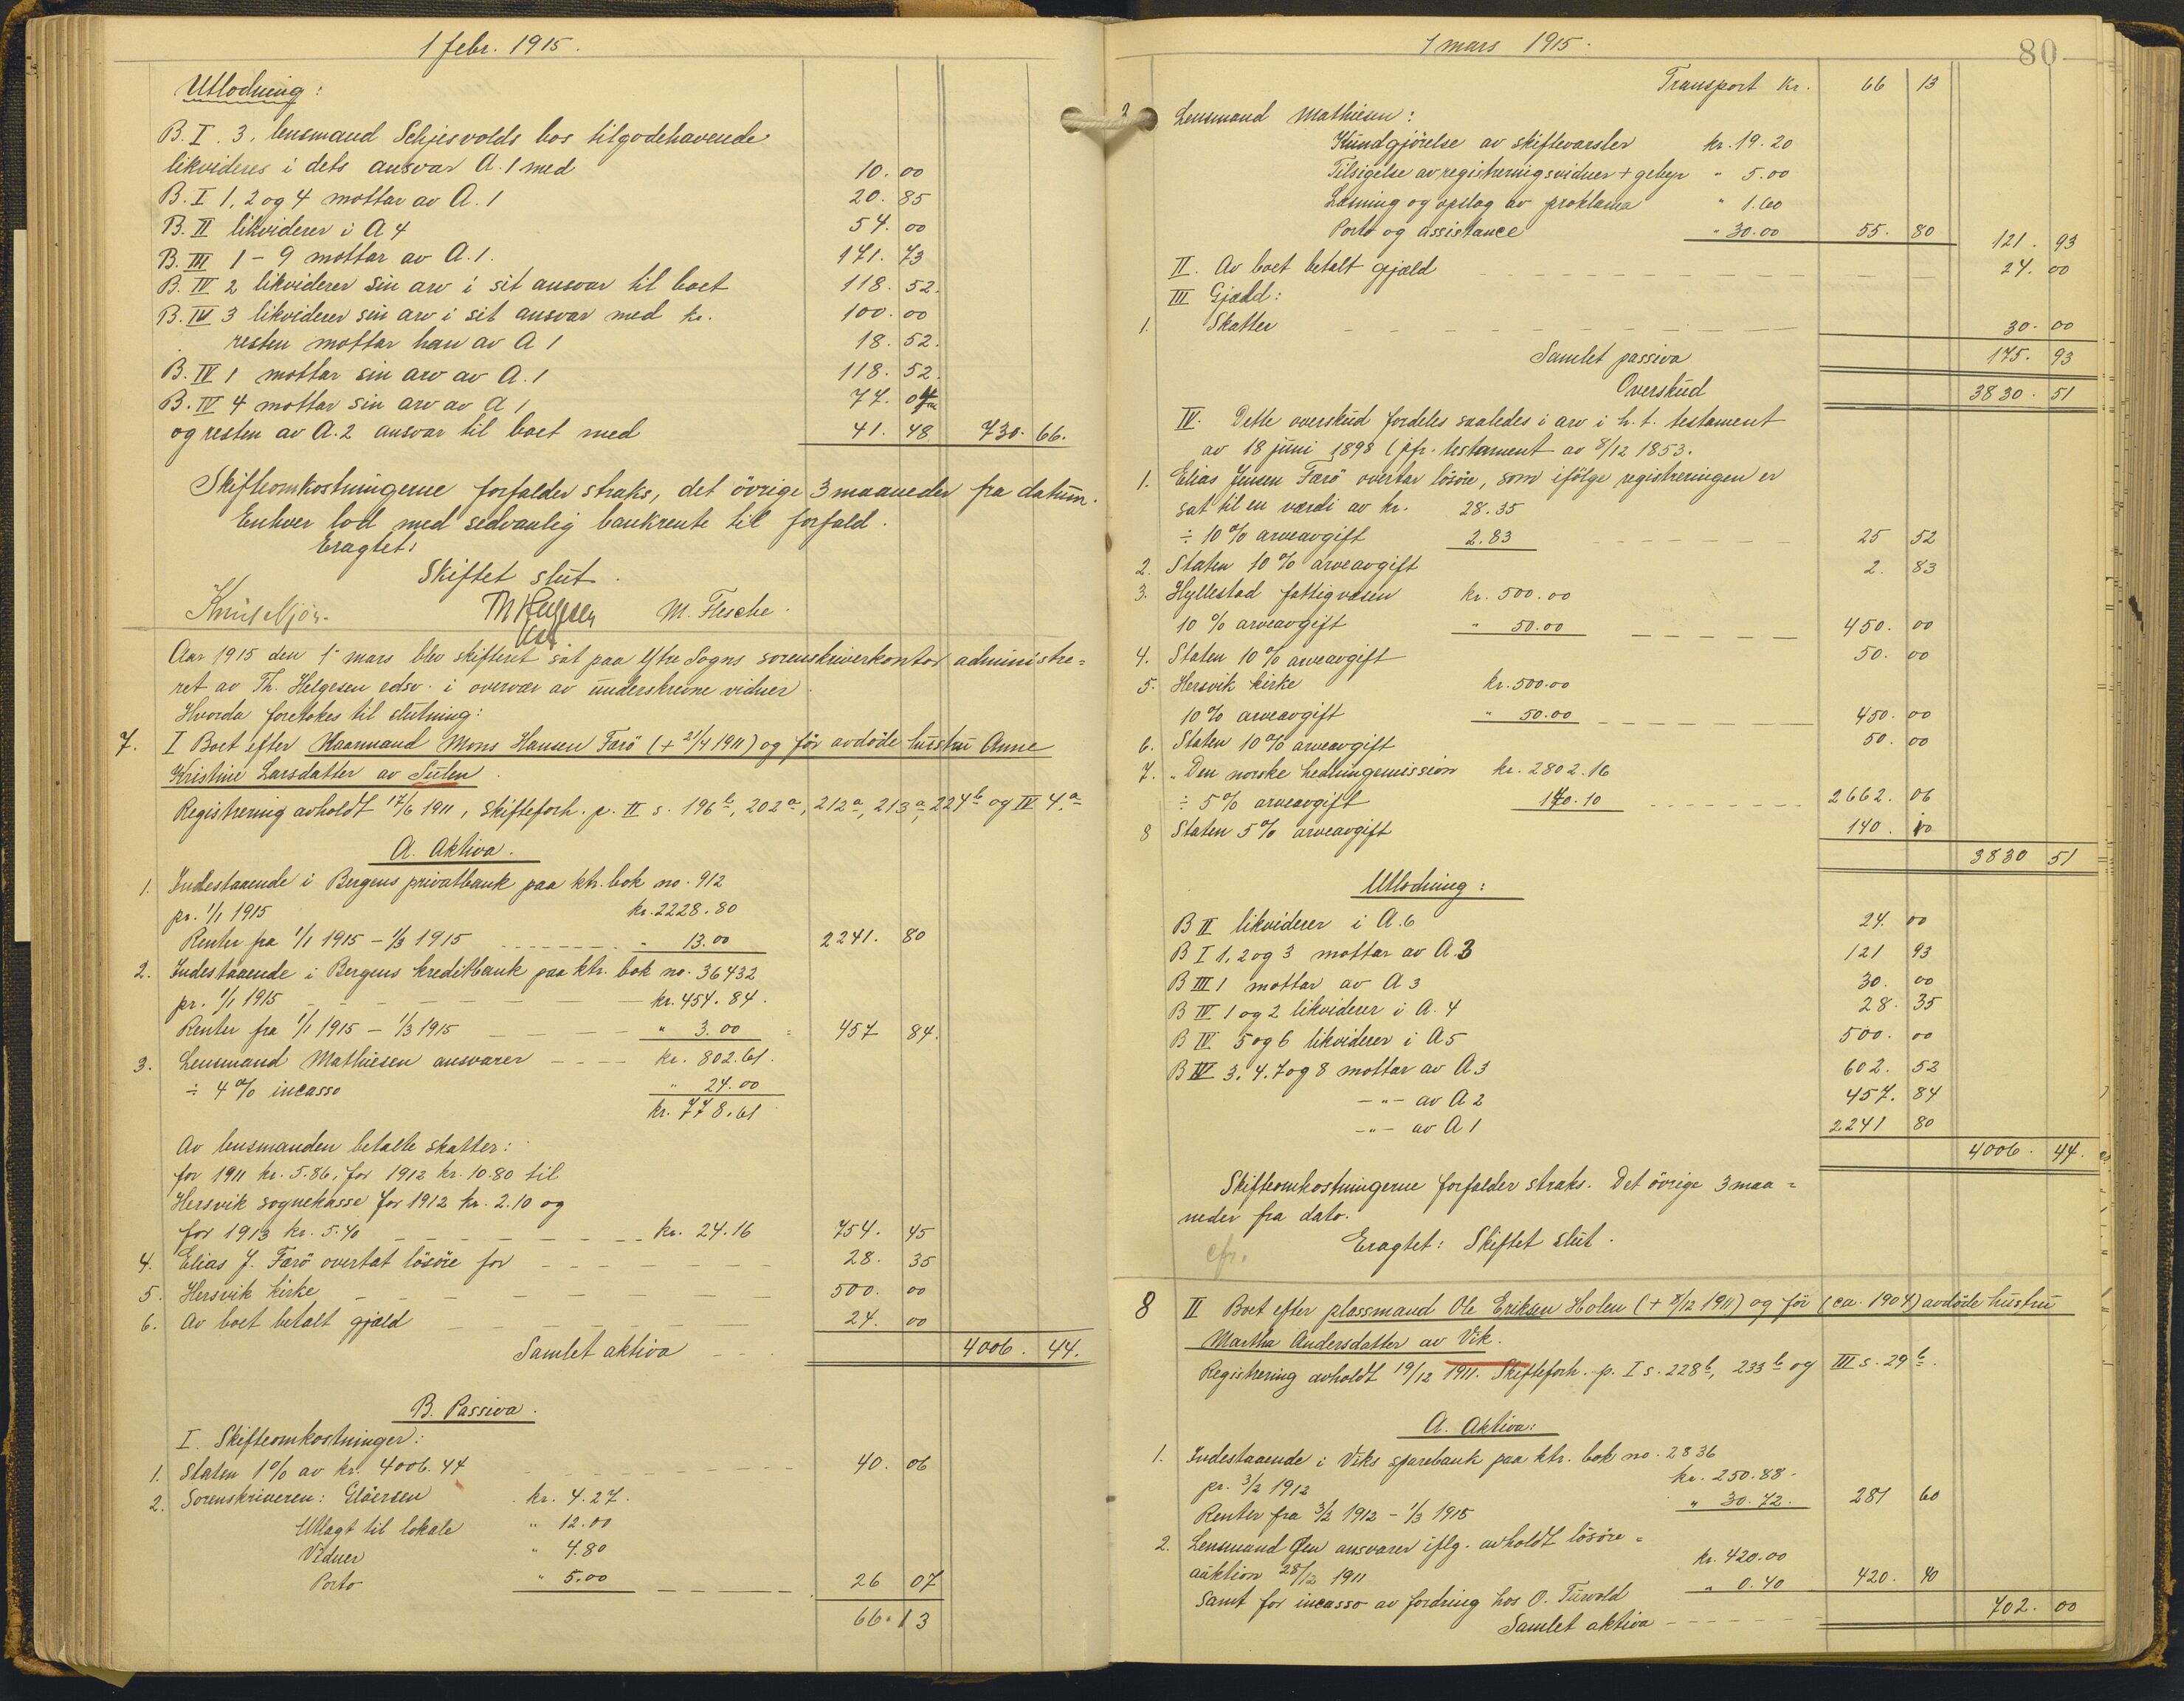 1 febr. 1915.
Utlodning:
B. I. 3, lensmand Schjesvolds bos tilgodehavende
likvideres i dets ansvar A. 1 med 10.00
B. I 1, 2 og 4 mottar av A. 1 20.85
B. II likviderer i A 4 54.00
B. III 1 - 9 mottar av A. 1. 171.73
B. IV 2 likviderer sin arv i sit ansvar til boet 118.52.
B. IV 3 likviderer sin arv i sit ansvar med kr. 100.00
resten mottar han av A 1 18.52.
B. IV 1 mottar sin arv av A. 1 118.52.
B. IV 4 mottar sin arv av A 1 77.04
og resten av A. 2 ansvar til boet med 41.48 730.66.
Skifteomkostningerne forfalder straks, det övrige 3 maaneder fra datum.
Enhver lod med sedvanlig bankrente til forfald.
Eragtet:
Skiftet slut.
Th Helgesen M. Flesche.
Aar 1915 den 1 mars blev skifteret sat paa Ytre Sogns sorenskriverkontor administre=
ret av Th. Helgesen edsv. i overvær av underskrevne vidner.
Hvorda foretokes til slutning:
7. I Boet efter Kaarmand Mons Hansen Farö (+ 21/4 1911) og för avdöde hustru Anne
Kristine Larsdatter av Sulen.
Registrering avholdt 17/6 1911, skifteforh. p. II s. 196 b, 202 a, 212 a, 213 a, 224 b og IV 4. a
A. Aktiva.
1. Indestaaende i Bergens privatbank paa ktr. bok no. 912
pr. 1/1 1915 kr. 2228.80
Renter fra 1/1 1915 - 1/3 1915 " 13.00 2241.80
2. Indestaaende i Bergens kreditbank paa ktr. bok no. 36432
pr. 1/1 1915 kr. 454.84.
Renter fra 1/1 1915 - 1/3 1915 " 3.00 = 457 84.
3. Lensmand Mathiesen ansvarer kr. 802.61.
÷ 4 % incasso " 24.00
kr. 778.61
Av lensmanden betalte skatter:
for 1911 kr. 5.86, for 1912 kr. 10.80 til
Hersvik sognekasse for 1912 kr. 2.10 og
for 1913 kr. 5.40 kr. 24.16 754.45
4. Elias J. Farö overtat lösöre for 28.35
5. Hersvik kirke 500.00
6. Av boet betalt gjæld 24.00
Samlet aktiva 4006.44.
B. Passiva.
I. Skifteomkostninger:
1. Staten 1 % av kr. 4006.44 40.06
2. Sorenskriveren: Gløersen kr. 4.27.
Utlagt til lokale " 12.00
Vidner " 4.80
Porto " 5.00 26 07
66.13
1 mars 1915.
80
Transport kr. 66 13
3 Lensmand Mathiesen:
Kundgjörelse av skiftevarsler kr. 19.20
Tilsigelse av registreringsvidner + gebyr " 5.00
Læsning og opslag av proklama " 1.60
Porto og assistance " 30.00 55.80 121.93
II. Av boet betalt gjæld 24.00
III Gjæld:
1. Skatter 30.00
Samlet passiva 175.93
Overskud 3830.51
IV. Dette overskud fordeles saaledes i arv i h. t. testament
av 18 juni 1898 (jfr. testament av 8/12 1853.
1. Elias Jensen Farö overtar lösöre, som ifölge registreringen er
sat til en værdi av kr. 28.35
÷ 10 % arveavgift 2.83 25 52
2. Staten 10 % arveavgift 2.83
3. Hyllestad fattigvæsen kr. 500.00
10 % arveavgift " 50.00 450.00
4. Staten 10 % arveavgift 50.00
5. Hersvik kirke kr. 500.00
10 % arveavgift " 50.00 450.00
6. Staten 10 % arveavgift 50.00
7. " Den norske hedningemission kr. 2802.16
÷ 5 % arveavgift 140.10 2662.06
8 Staten 5 % arveavgift 140.10
3830 51
Utlodning:
B II likviderer i A. 6 24.00
B I 1, 2 og 3 mottar av A. 3 121 93
B III 1 mottar av A 3 30.00
B IV 1 og 2 likviderer i A. 4 28.35
B IV 5 og 6 likviderer i A 5 500.00
B IV 3. 4. 7 og 8 mottar av A 3 602.52
-"- av A 2 457.84
-"- av A 1 2241 80
4006.44.
Skifteomkostningerne forfalder straks. Det övrige 3 maa=
neder fra dato.
cfr. Eragtet: Skiftet slut.
8 II Boet efter plassmand Ole Eriksen Holen (+ 8/12 1911) og för (ca. 1904) avdöde hustru
Martha Andersdatter av Vik.
Registrering avholdt 19/12 1911. Skifteforh. p. I s. 228 b, 233 b og III s. 29 b.
A. Aktiva:
1. Indestaaende i Viks sparebank paa ktr. bok no. 2836
pr. 3/2 1912 kr. 250.88.
Renter fra 3/2 1912 - 1/3 1915 " 30.72. 281 60
2. Lensmand Øen ansvarer iflg. avholdt lösöre=
auktion 28/12 1911 kr. 420.00
samt for incasso av fordring hos O. Turvold " 0.40 420.40
Samlet aktiva 702.00